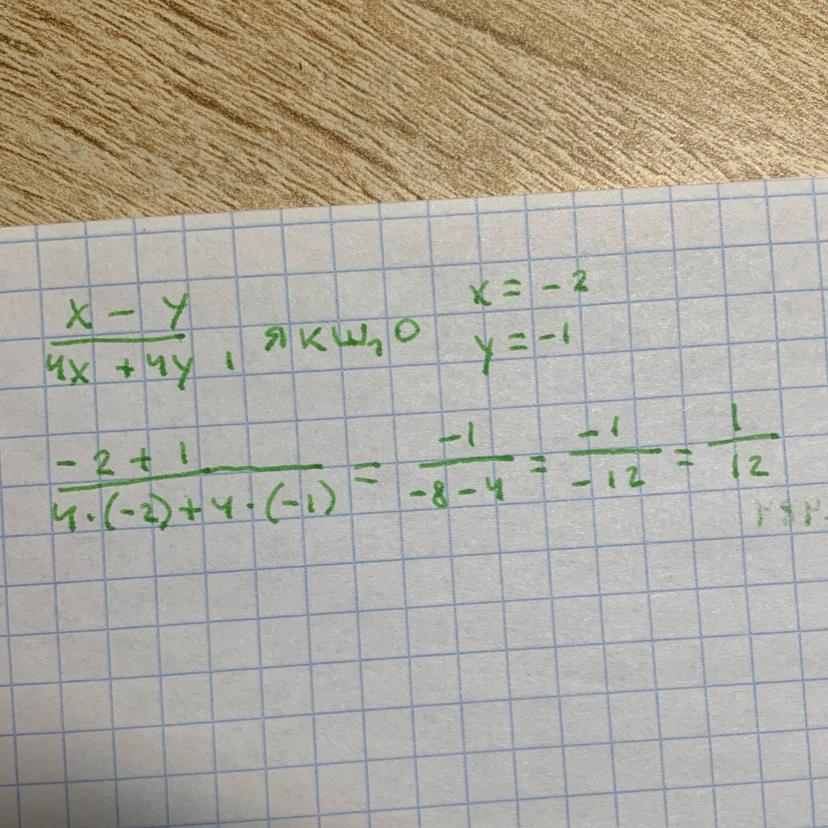 x - y / 4x + 4y , якщо x = -2 y = -1
-2 + 1 / 4·(-2) + 4·(-1) = -1 / -8 - 4 = -1 / -12 = 1 / 12